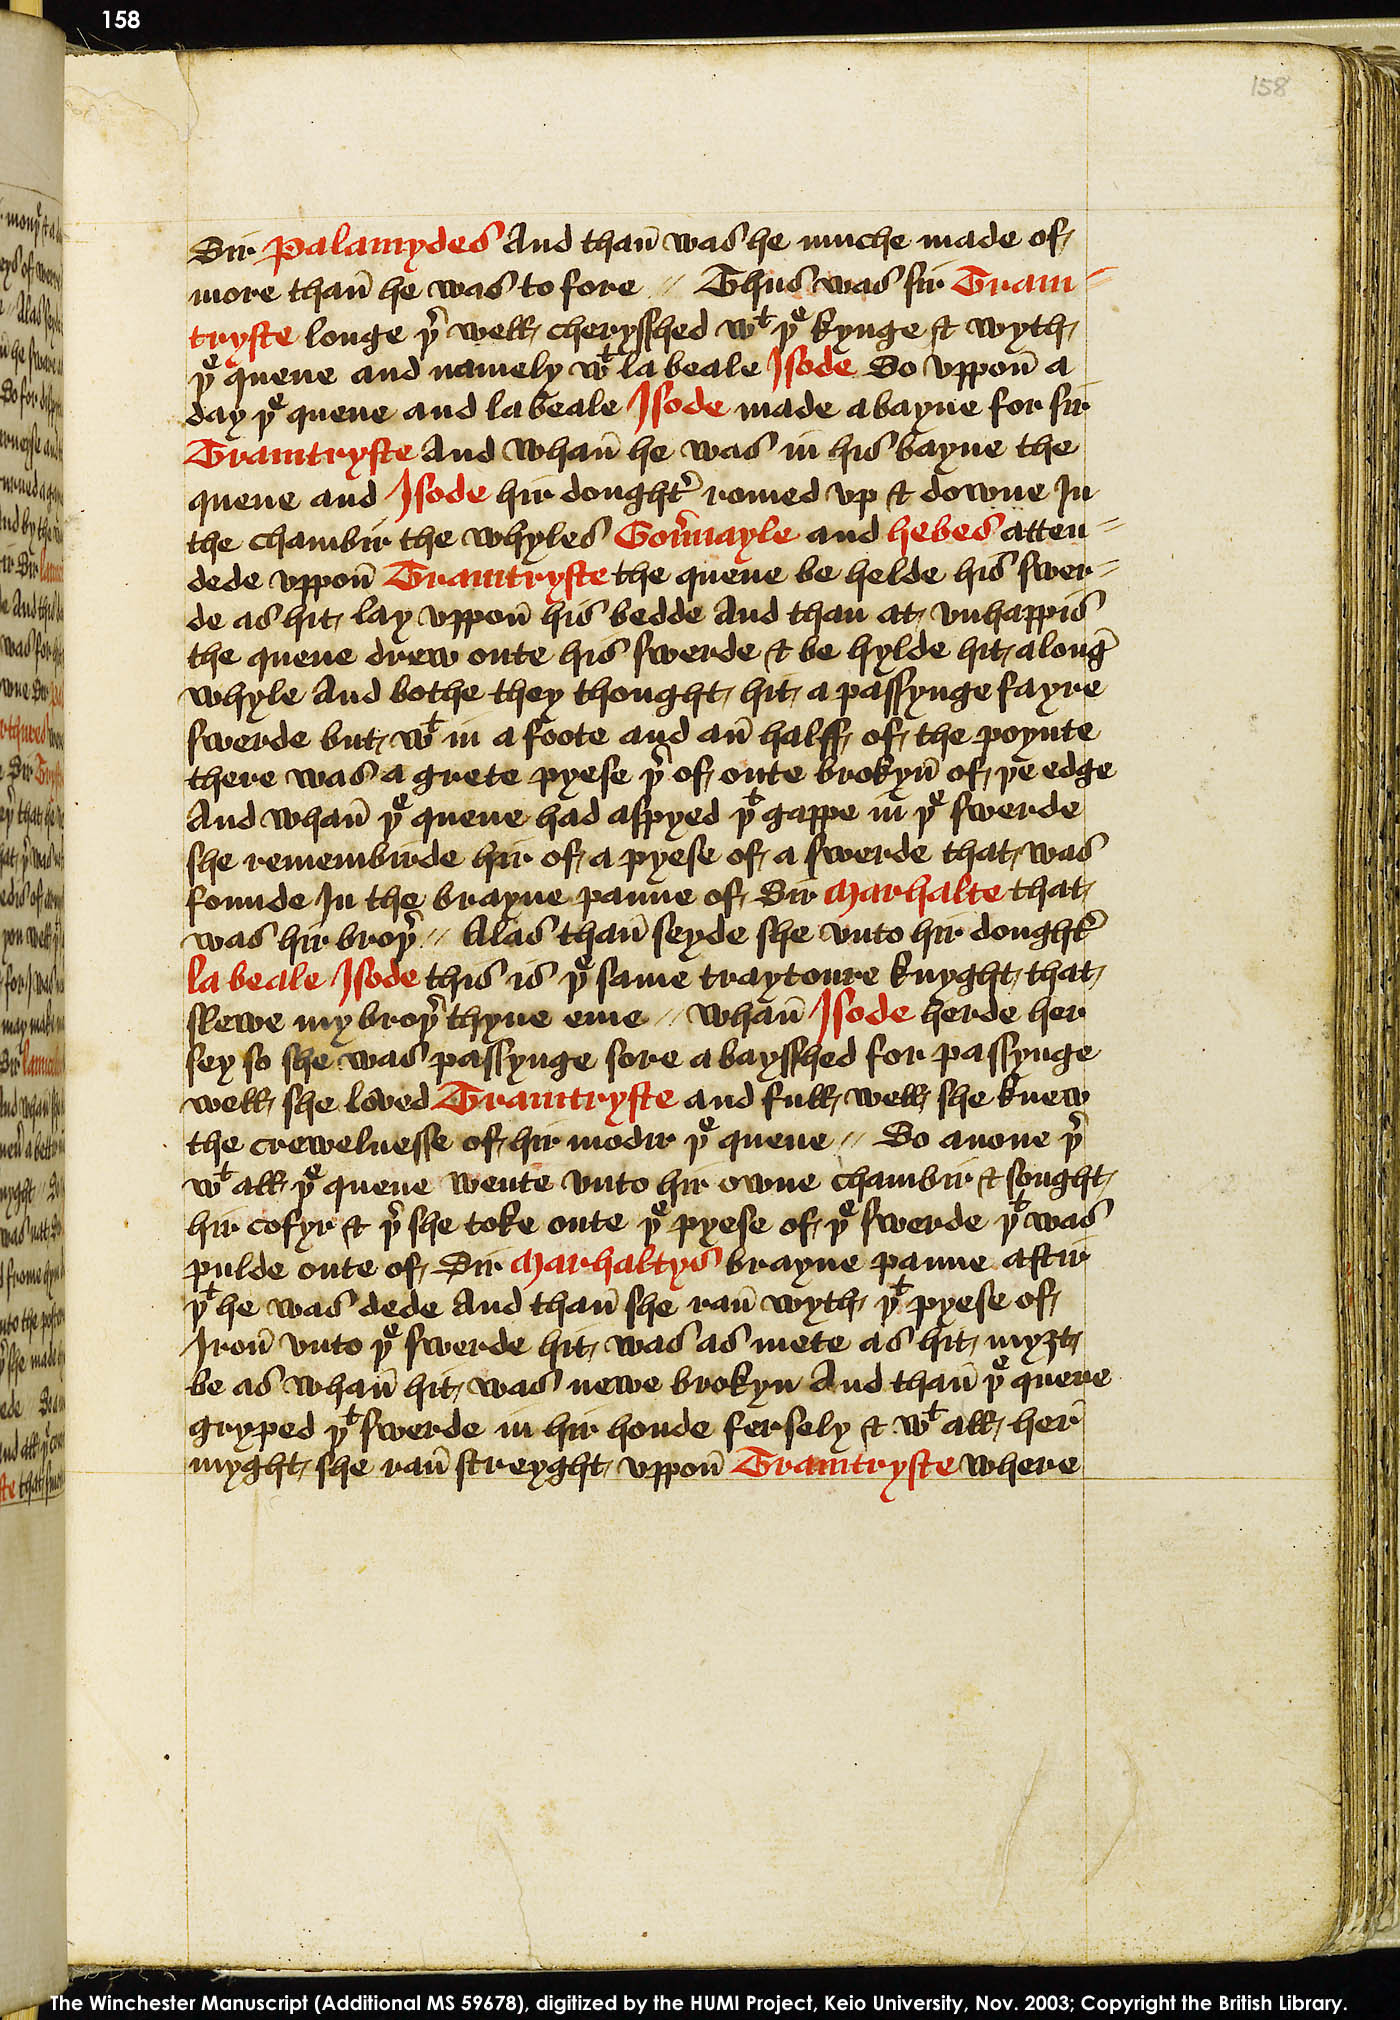 158
158
Sir Palamydes And than̄ was he muche made of
more than̄ he was to fore // Thus was sir Tram=
tryste longe þr̛ well cherysshed wt þe kynge & wyth
þe quene and namely wt la beale Isode So vppon̄ a
day þe quene and la beale Isode made a bayne for sir
Tramtryste And whan̄ he was in his bayne the
quene and Isode hir doughtr̛ romed vp & downe In
the chambir the whyles Goưnayle and hebes atten=
dede vppon̄ Tramtryste the quene be helde his swer=
de as hit lay vppon̄ his bedde And than at vnhappis
the quene drew oute his swerde & be hylde hit a lonḡ
whyle And bothe they thought hit a passynge fayre
swerde but wt in a foote and an̄ halff of the poynte
there was a grete pyese þr̛ of oute brokyn̄ of þe edge
And whan̄ þe quene had aspyed þt gappe in þe swerde
she remembirde hir of a pyese of a swerde that was
founde In the brayne panne of Sir Marhalte that
was hir broþr̛ // Alas than̄ seyde she vnto hir doughtr̛
la beale Isode this is þe same traytoure knyght that
slewe my broþr̛ thyne eme // whan̄ Isode herde her
sey so she was passynge sore a baysshed for passynge
well she loved Tramtryste and full well she knew
the crewelnesse of hir modir þe quene // So anone þr̛
wt all þe quene wente vnto hir owne chambir & sought
hir cofyr & þr̛ she toke oute þe pyese of þe swerde þt was
pulde oute of Sir Marhaltys brayne panne aftir
þt he was dede And than̄ she ran̄ wyth þt pyese of
Iron̄ vnto þe swerde hit was as mete as hit myȝt
be as whan̄ hit was newe brokyn And than̄ þe quene
gryped þt swerde in hir honde fersely & wt all her̄
myght she ran̄ streyght vppon̄ Tramtryste where
The Winchester Manuscript (Additional MS 59678), digitized by the HUMI Project, Keio University, Nov. 2003; Copyright the British Library.